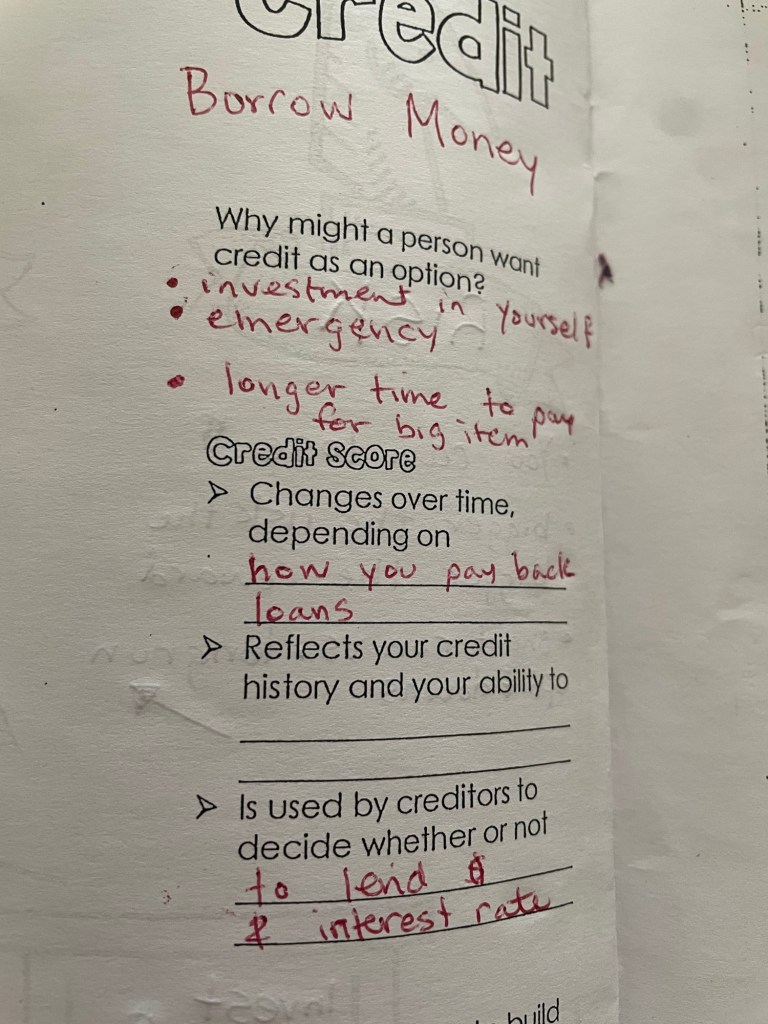 Credit
Borrow Money
Why might a person want
credit as an option?
• investment in yourself
• emergency
• longer time to pay
for big item
Credit Score
➢ Changes over time,
depending on
how you pay back
loans
➢ Reflects your credit
history and your ability to
➢ Is used by creditors to
decide whether or not
to lend $
& interest rate
build